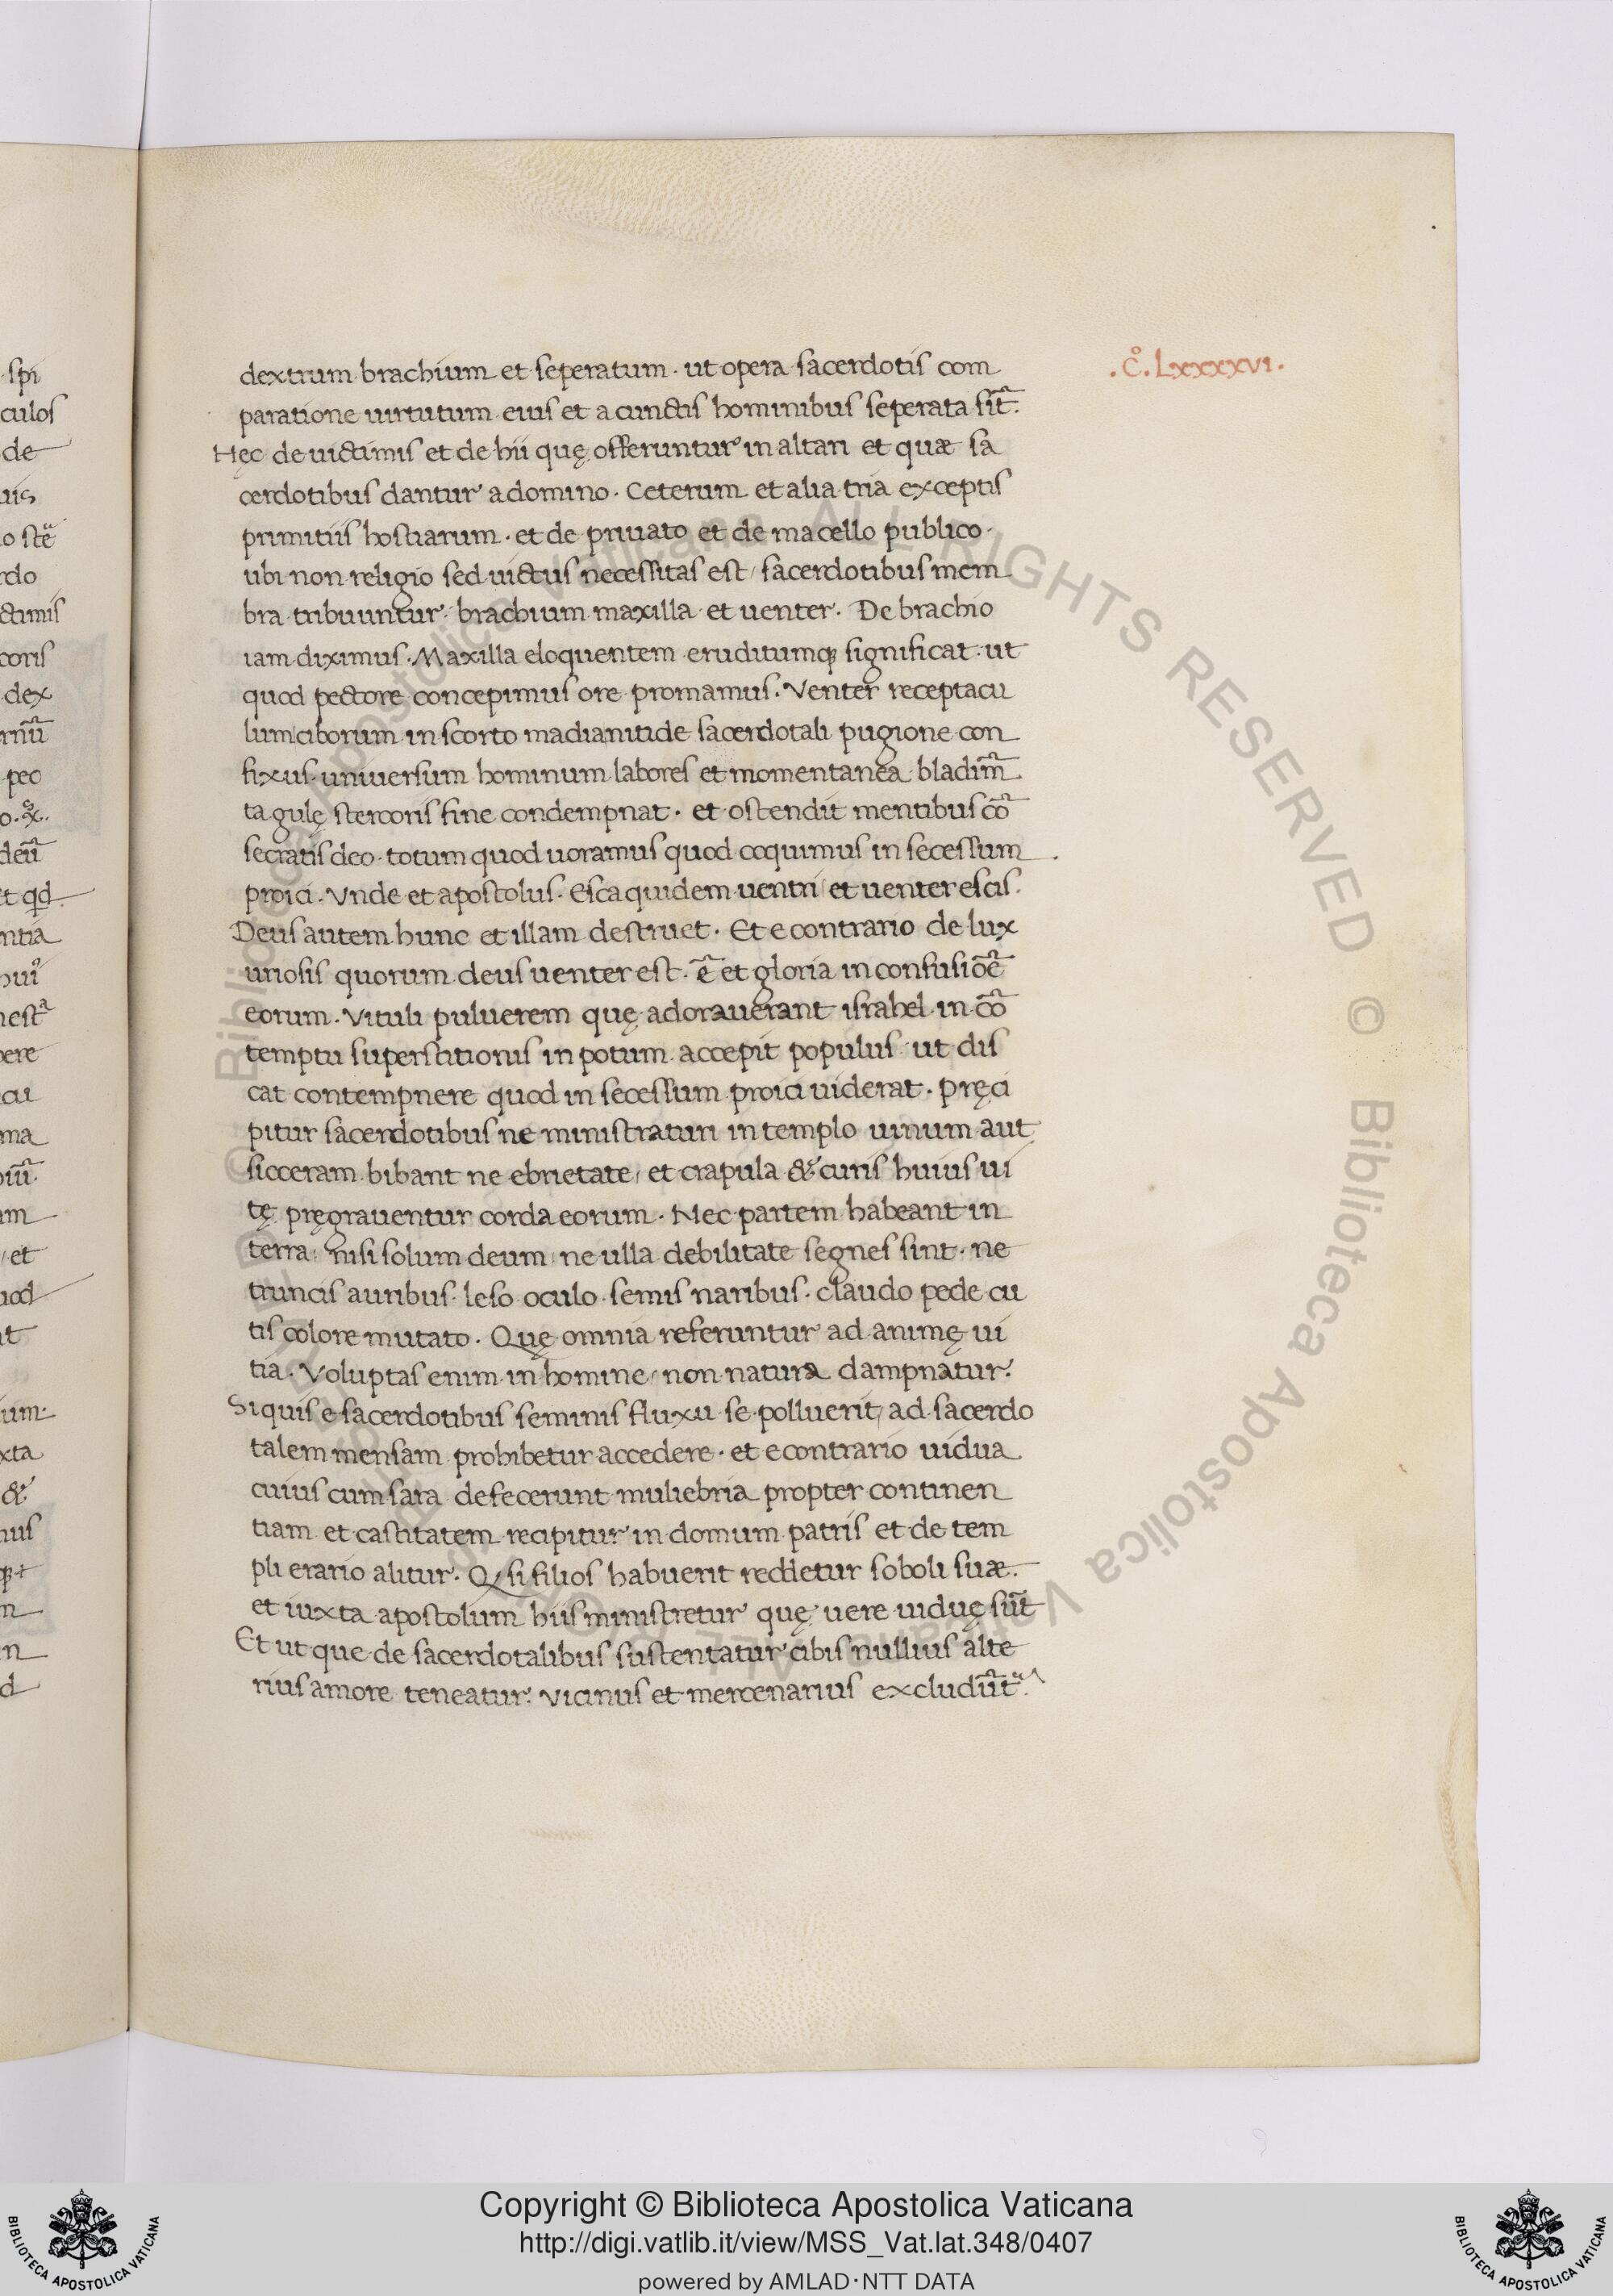 dextrum brachium et seperatum · ut opera sacerdotis com
.c̊. Lxxxxvi.
paratione uirtutum eius et a cunctis hominibus seperata sīt.
Hęc de uictimis et de hii quę offeruntur in altari et quæ sa
cerdotibus dantur a domino · Ceterum et alia tria exceptis
primitiis hostiarum · et de priuato et de macello publico ·
ubi non religio sed uictus necessitas est / sacerdotibus mem
bra tribuuntur · brachium maxilla et uenter · De brachio
iam diximus · Maxilla eloquentem eruditumq; significat · ut
quod pectore concepimus ore promamus · Venter receptacu
lum ciborum in scorto madianitide sacerdotali pugione con
fixus · uniuersum hominum labores et momentanea bladim̄
ta gulę stercoris fine condempnat · et ostendit mentibus cō
secratis deo · totum quod uoramus quod coquimus in secessum
proici · Vnde et apostolus · Esca quidem uentri / et uenter escis ·
Deus autem hunc et illam destruet · Et e contrario de lux
uriosis quorum deus uenter est · ē et gloria in confusiōē
eorum · Vituli puluerem quę adorauerant israhel in cō
temptu superstitionis in potum accepit populus ut dis
cat contempnere quod in secessum proici uiderat · Pręci
pitur sacerdotibus ne ministraturi in templo uinum aut
sicceram bibant ne ebrietate / et crapula & curis huius ui
tę pręgrauentur corda eorum · Nec partem habeant in
terra / nisi solum deum / ne ulla debilitate segnes sint · ne
truncis auribus · leso oculo · semis naribus · claudo pede cu
tis colore mutato · Quę omnia referuntur ad animę ui
tia · Voluptas enim in homine / non natura dampnatur ·
Si quis e sacerdotibus seminis fluxu se polluerit / ad sacerdo
talem mensam prohibetur accedere · et e contrario uidua
cuius cum sara defecerunt muliebria propter continen
tiam et castitatem recipitur in domum patris et de tem
pli erario alitur · Q̨ si filios habuerit reddetur soboli suæ ·
et iuxta apostolum hiis ministretur quę uere uiduę sūt
Et ut que de sacerdotalibus sustentatur cibis nullius alte
rius amore teneatur · Vicinus et mercenarius excludūt
Copyright © Biblioteca Apostolica Vaticana
http://digi.vatlib.it/view/MSS_Vat.lat.348/0407
powered by AMLAD·NTT DATA